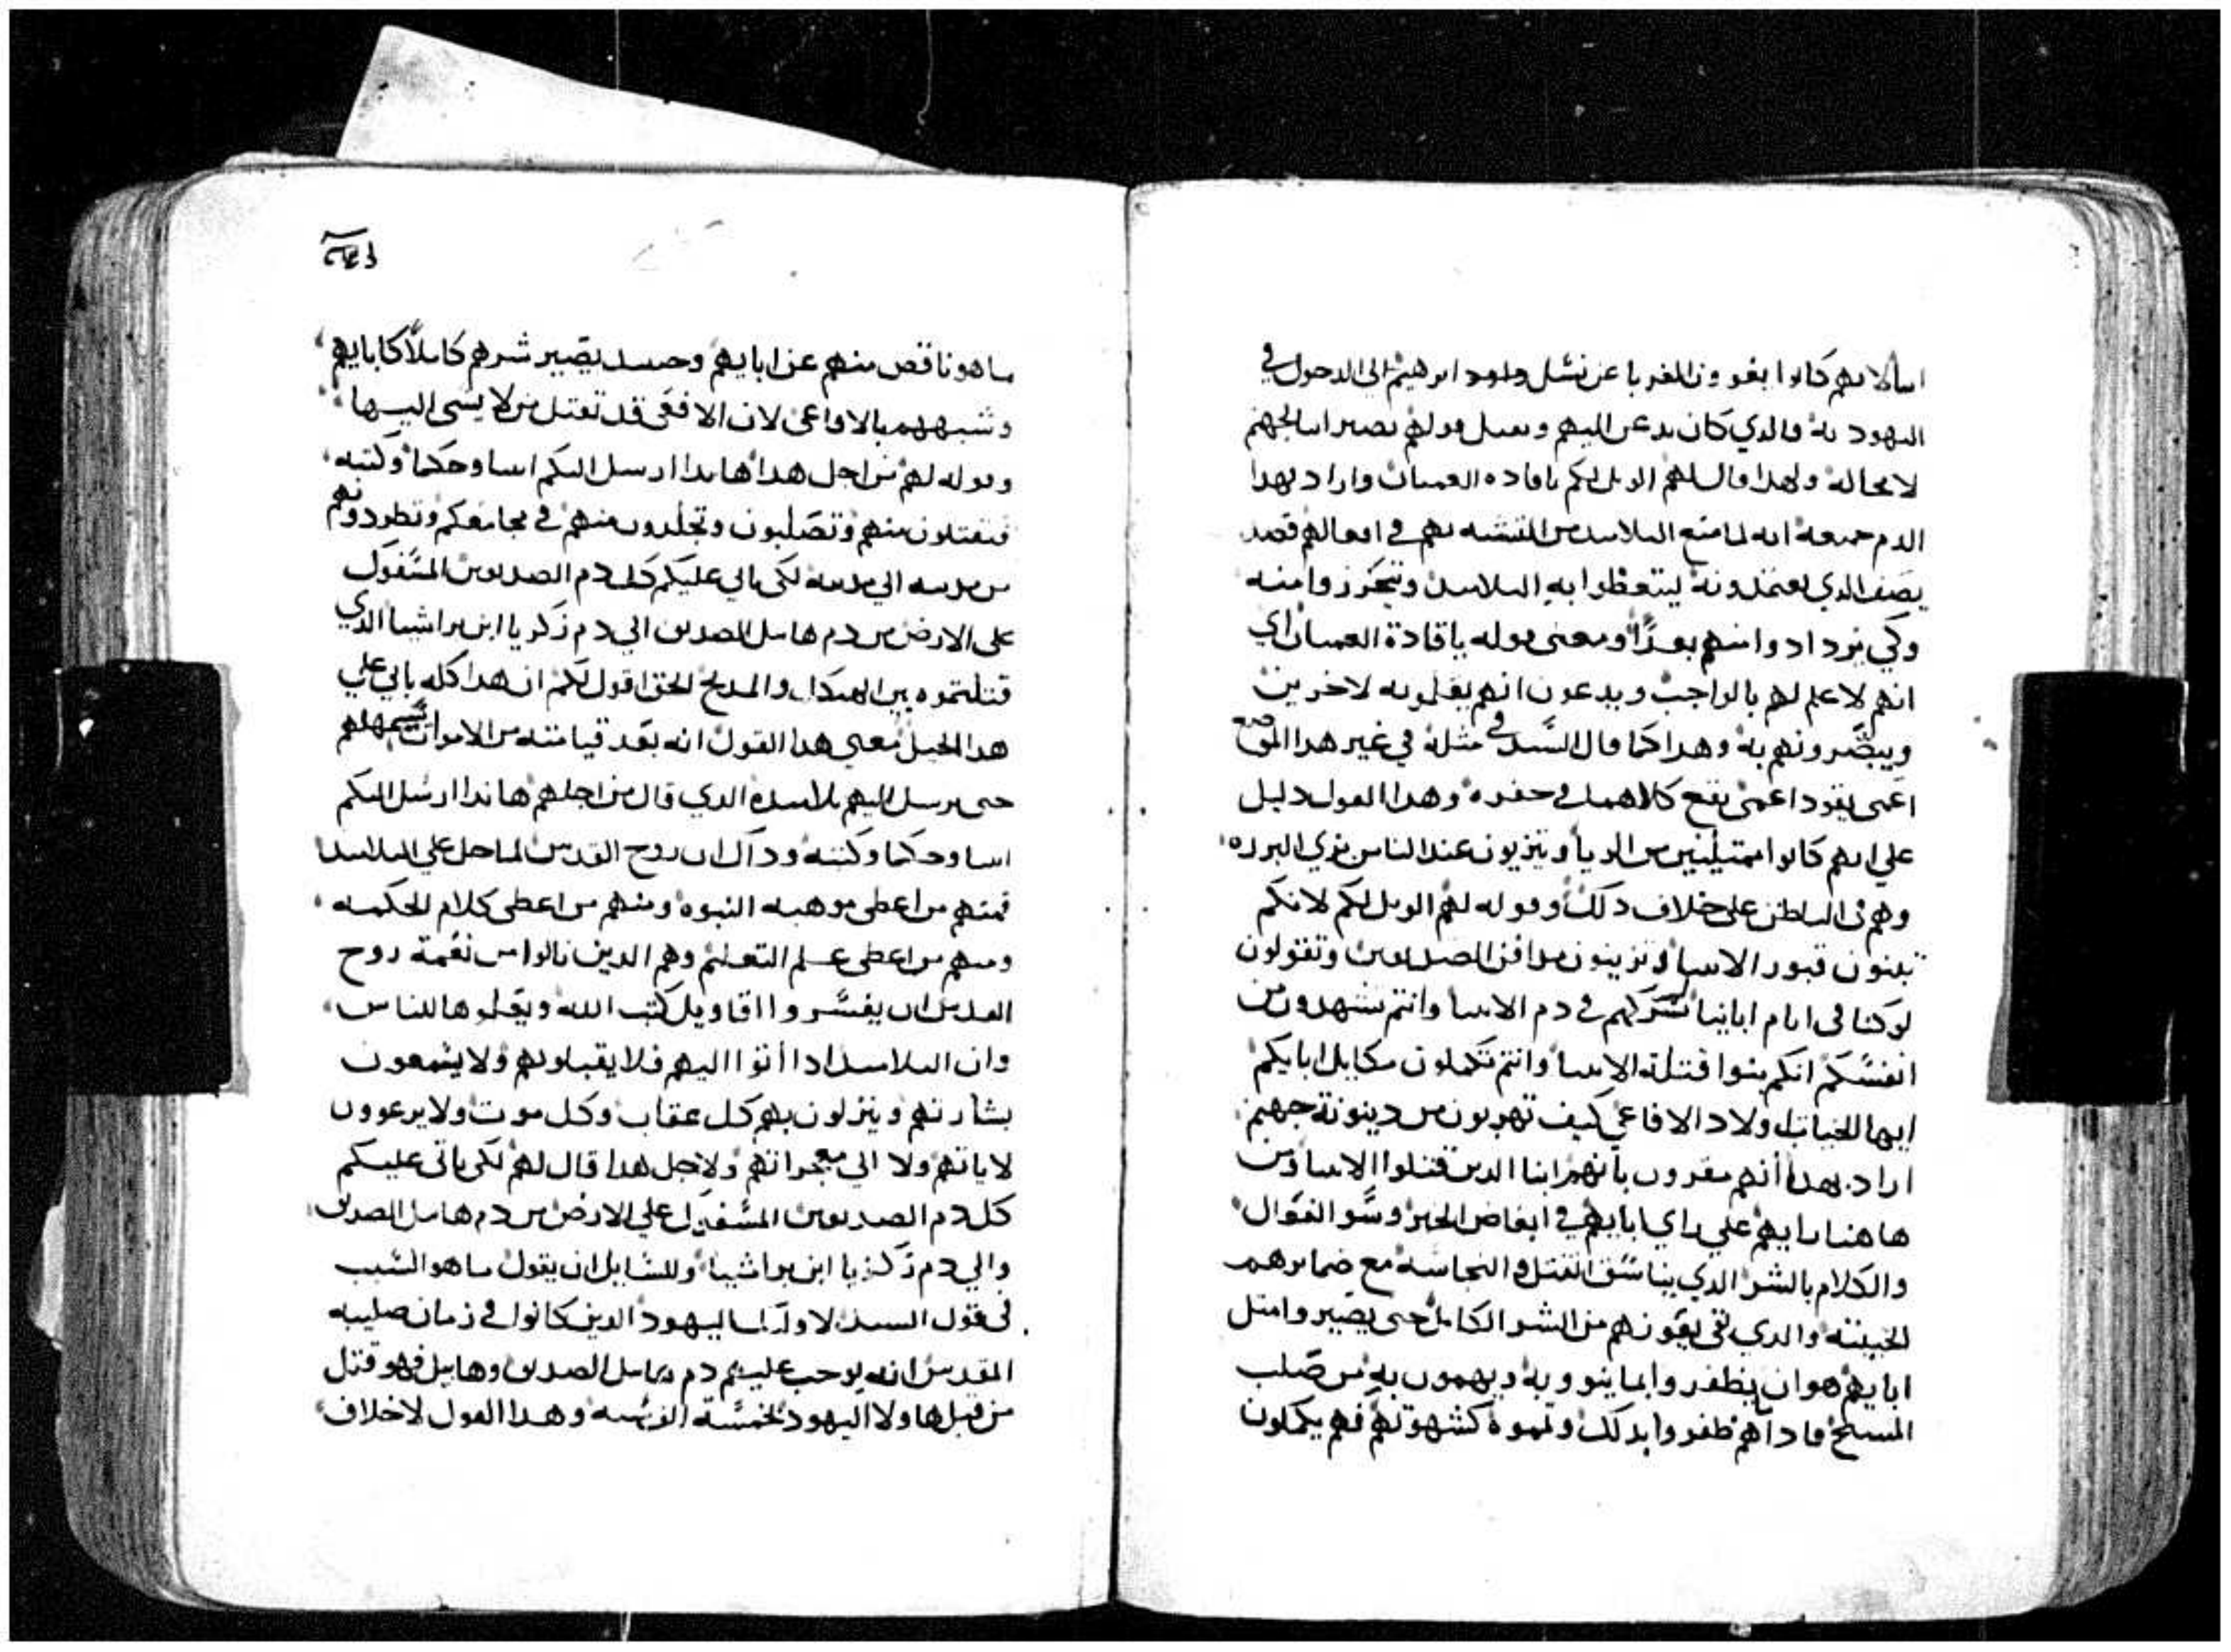 ابنا لانهم كانوا يقودون الغربا عن نسل داود ابرهيم الي الدخول في
اليهوديه والدي كان يدعن اليهم ويقبل قولهم يصير ابنا لجهنم
لا محاله ولهدا قال لهم الويل لكم ياقاده العميان واراد بهدا
الدم جميعه انه لما منع التلاميد من التشبه بهم في افعالهم قصد
يصف الدي يعتمدونه ليتعظوا به التلاميد ويتحرزوا منه
وكي يزدادوا منهم بعدًا ومعني قوله ياقادة العميان اي
انهم لا علم لهم بالواجب ويدعون انهم يعلمونه لاخرين
ويبصرونهم به وهدا كما قال السيد في مثله في غير هدا الموضع
اعمى يقود اعمى يقع كلاهما في حفره وهدا القول دليل
علي انهم كانوا ممتيليين من الريا ويتزيون عند الناس بزي البرره
وهم في الباطن على خلاف دلك وقوله لهم الويل لكم لانكم
تبنون قبور الانبيا وتزينون مدافن الصديقين وتقولون
لو كنا في ايام اباينا لم نشركهم في دم الانبيا وانتم تشهدون من
انفسكم انكم بنوا قتلة الانبيا وانتم تكملون مكايل ابايكم
ايها الحيات اولاد الافاعي كيف تهربون من دينونة جهنم
اراد بهدا أنهم مقرون بانهم ابنا الدين قتلوا الانبيا ومن
هاهنا رايهم علي راي ابايهم في ابغاض الخير وسو الفوال
والكلام بالشر الدي يناسق القتل والنجاسه مع ضمايرهم
الخبيثه والدي بقي يعوزهم من الشر الكامل حتى يصيروا متل
ابايهم هو ان يظفروا بما ينووبه ويهمون به من صلب
المسيح فاداهم ظفروا بدلك وتموه كشهوتهم فهم يكملون
ما هو ناقص منهم عن ابايهم وحينيد يصير شرهم كاملاً كابايهم
وشبههم بالافاعي لان الافعى قد تقتل من لا يسي اليها
وقوله لهم من اجل هدا هاندا ارسل اليكم انبيا وحكما وكتبه
فتقتلون منهم وتصلبون وتجلدون منهم في مجامعكم وتطردونهم
من مدينه الي مدينه لكي ياتي عليكم كل دم الصديقين المسفوك
على الارض من دم هابيل الصديق الي دم زكريا ابن براشيا الدي
قتلتموه بين الهيكل والمدبح الحق اقول لكم ان هدا كله ياتي علي
هدا الجيل معني هدا القول انه بعد قيامته من الاموات يمهلهم
حتى يرسل اليهم تلاميده الدي قال من اجلهم هاندا ارسل اليكم
انبيا وحكما وكتبه وداك ان روح القدس لما حل علي التلاميد
فمنهم من اعطي موهبه النبوه ومنهم من اعطي كلام الحكمه
ومنهم من اعطي علم التعليم وهم الدين نالوا من نعمة روح
القدس ان يفسروا اقاويل كتب الله ويعلموها للناس
وان التلاميد ادا أتوا اليهم فلا يقبلونهم ولا يسمعون
بشارتهم وينزلون بهم كل عقاب وكل موت ولا يرعوون
لاياتهم ولا الي معجزاتهم ولاجل هدا قال لهم لكي ياتي عليكم
كل دم الصديقين المسفوك علي الارض من دم هابيل الصديق
والي دم زكريا ابن براشيا وللسايل ان يقول ما هو السبب
في قول السيد لاوليك اليهود الدين كانوا في زمان صليبه
المقدس انه يوجب عليهم دم هابيل الصديق وهابيل فهو قتل
من قبل هاولا اليهود بخمسة الف سنه وهدا القول لا خلاف